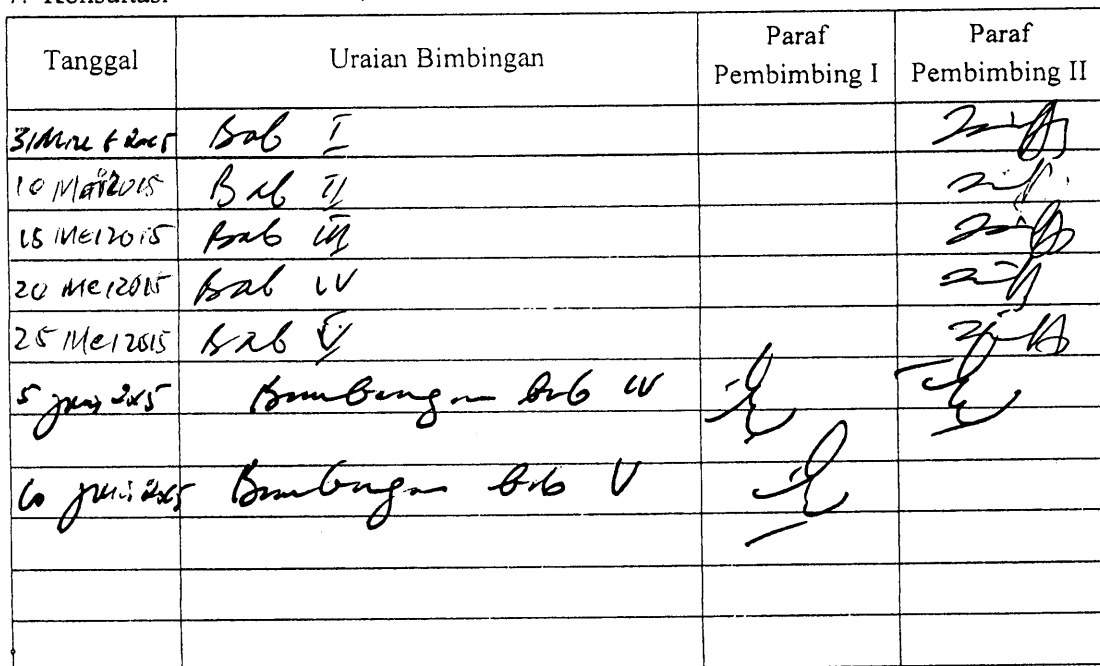 7. Konsultasi
Tanggal Uraian Bimbingan Paraf Pembimbing I Paraf Pembimbing II
31 Maret 2015 Bab I
10 Mei 2015 Bab II
15 Mei 2015 Bab III
20 Mei 2015 Bab IV
25 Mei 2015 Bab V
5 Juni 2015 Bimbingan bab IV
10 Juni 2015 Bimbingan bab V